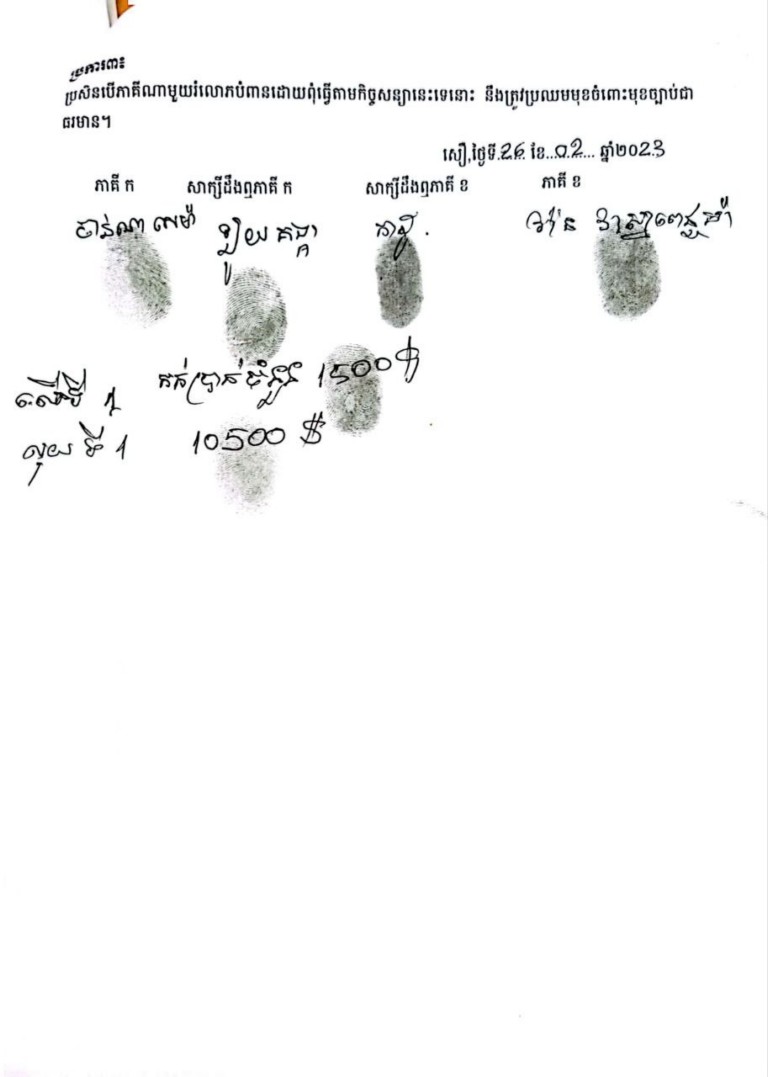 ប្រការ៣៖
ប្រសិនបើភាគីណាមួយរំលោភបំពានដោយពុំធ្វើតាមកិច្ចសន្យានេះទេនោះ នឹងត្រូវប្រឈមមុខចំពោះមុខច្បាប់ជា
ធរមាន។
សឿ,ថ្ងៃទី.26. ខែ...02... ឆ្នាំ២០23
ភាគី ក សាក្សីដឹងឮភាគី ក សាក្សីដឹងឮភាគី ខ ភាគី ខ
ចាន់ណា
លើទី 1 កក់ប្រាក់ចំនួន 1500$
លុយ ទី 1 10500 $